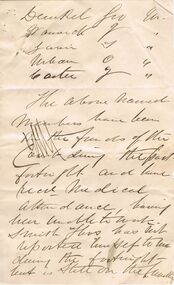 Deunkel Geo Mr.
Warwick J "
Lurie S "
Urban O "
Carter J "
The above named
Members have been
on the funds of the
Court during the past
fortnight and have
recd Medical
attendance, having
been unable to work.
Smith Thos has not
reported himself to me
during the fortnight
but is still on the funds